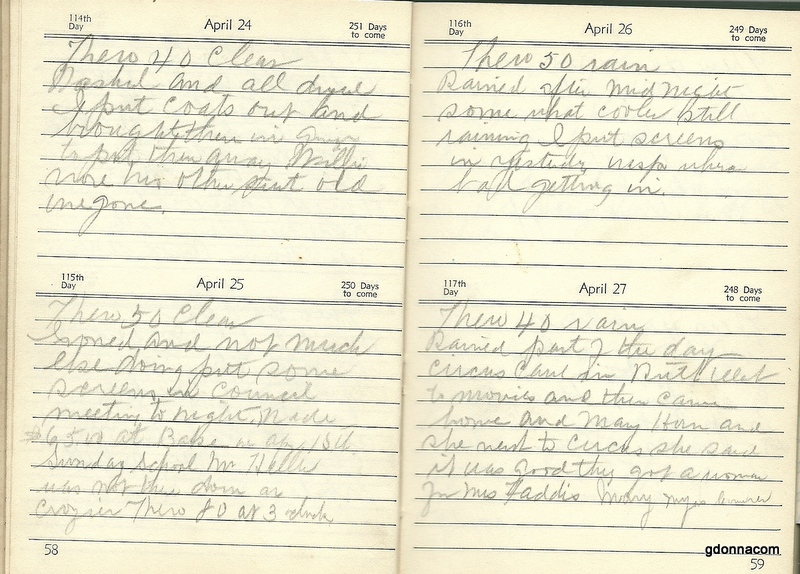 114th
Day
April 24
251 Days
to come
Thero 40 Clear
Washed and all dried
I put coats out and
brought them in
to put them away Willie
wore his other suit old
one gone.
115th
Day
April 25
250 Days
to come
Thero 50 Clear
Ironed and not much
else doing put some
screens in Council
meeting to night Made
$6500 at Bake
Sunday School Mr
was not then
Crozier Thero 80 at 3 oclock
58
116th
Day
April 26
249 Days
to come
Thero 50 rain
Rained after midnight
some what cooler still
raining I put screens
in yesterday wasps
bad getting in.
117th
Day
April 27
248 Days
to come
Thero 40 rain
Rained part of the day
Circus came in Ruth went
to movies and then came
home and Mary Horn and
she went to Circus she said
it was good they got a woman
for Mrs Faddis Mary
gdonnacom
59